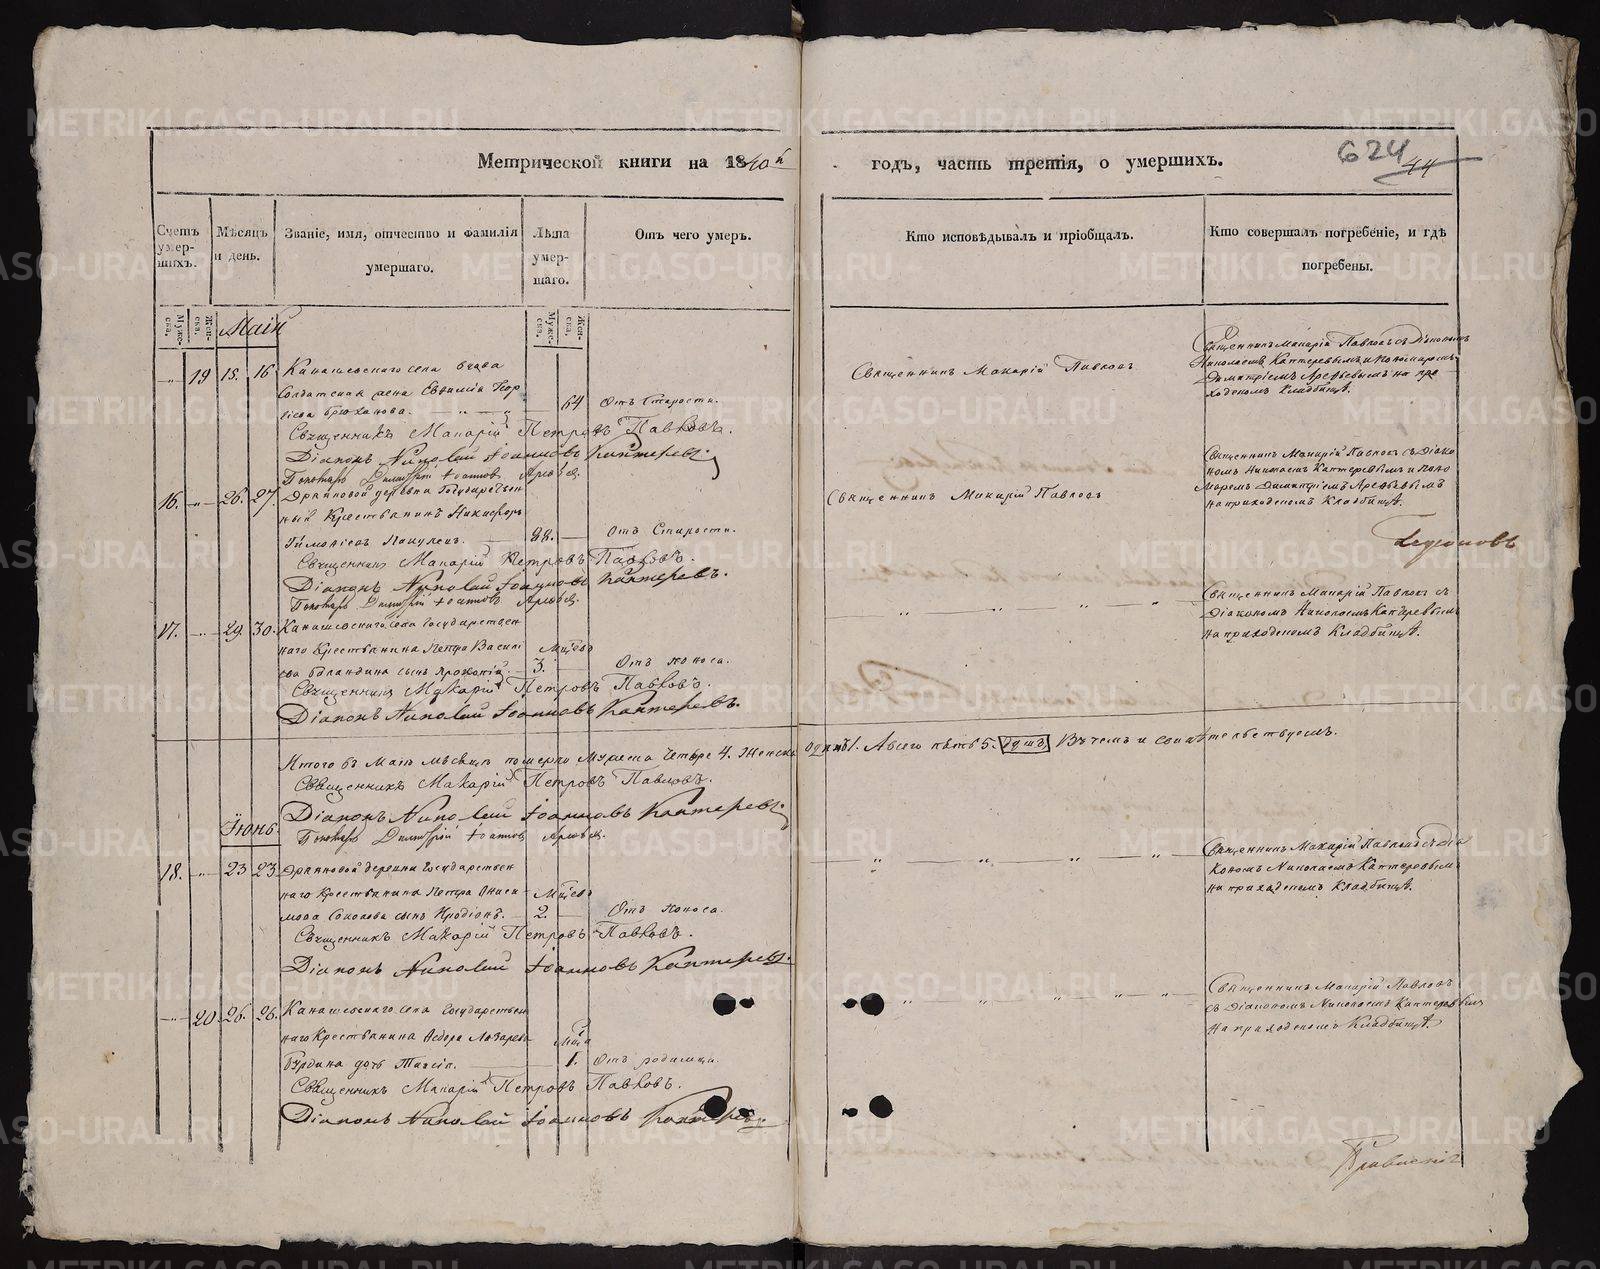 Метрической книги на 1840й годъ, часть третія, о умершихъ.
624
44
Счетъ умер-шихъ.
Мѣсяцъ и день.
Званіе, имя, отчество и фамилія умершаго.
Лѣта умер-шаго.
Отъ чего умеръ.
Кто исповѣдывалъ и пріобщалъ.
Кто совершалъ погребеніе, и гдѣ погребены.
Муже-ска.
Жен-ска.
Маій
Муже-ска.
Жен-ска.
19 15. 16 Канашевскаго села вдова
Солдатская жена Евѳимія Геор
гіева Брюханова. 64 Отъ Старости.
Священникъ Макарій Павловъ
Священникъ Макарій Павловъ съ Діакономъ
Николаемъ Каптеревымъ и Пономаремъ
Димитріемъ Арефьевымъ на при
ходскомъ Кладбищѣ.
Священникъ Макарій Петровъ Павловъ.
Діаконъ Николай Іоанновъ Каптеревъ.
Пономарь Димитрій Іоанновъ Арефьевъ.
16. 26. 27. деревни Государствен
ный Крестьянинъ Никифоръ
88. Отъ Старости.
Священникъ Макарій Павловъ
Священникъ Макарій Павловъ съ Діако
номъ Николаемъ Каптеревымъ и Поно
маремъ Димитріемъ Арефьевымъ
на приходскомъ Кладбищѣ.
Священникъ Макарій Петровъ Павловъ.
Діаконъ Николай Іоанновъ Каптеревъ.
Пономарь Димитрій Іоанновъ Арефьевъ.
17. 29. 30. Канашевскаго села Государствен
наго Крестьянина Петра Васильі
ева сынъ Прокопій. Мѣсяц. 3. Отъ поноса.
Священникъ Макарій Павловъ съ
Діакономъ Николаемъ Каптеревымъ
на приходскомъ Кладбищѣ.
Священникъ Макарій Петровъ Павловъ.
Діаконъ Николай Іоанновъ Каптеревъ.
Итого въ Маіи мѣсяцѣ померло Мужеска четыре 4. Женска одинъ 1. А всего пять 5. душъ. Въ чемъ и свидѣтельствуемъ.
Священникъ Макарій Петровъ Павловъ.
Діаконъ Николай Іоанновъ Каптеревъ.
Іюнь.
Пономарь Димитрій Іоанновъ Арефьевъ.
18. 23 23 деревни Государствен
наго Крестьянина Петра Ониси
мова Соколова сынъ Иродіонъ. Мѣсяц. 2. Отъ поноса.
Священникъ Макарій Павловъ съ Діа
кономъ Николаемъ Каптеревымъ
на приходскомъ Кладбищѣ.
Священникъ Макарій Петровъ Павловъ.
Діаконъ Николай Іоанновъ Каптеревъ.
20. 26. 26. Канашевскаго села Государствен
наго Крестьянина Ѳедора Лазарева
дочь Таисія. 1. Отъ родимца.
Священникъ Макарій Павловъ
съ Діакономъ Николаемъ Каптеревымъ
на приходскомъ Кладбищѣ.
Священникъ Макарій Петровъ Павловъ.
Діаконъ Николай Іоанновъ Каптеревъ.
METRIKI.GASO-URAL.RU